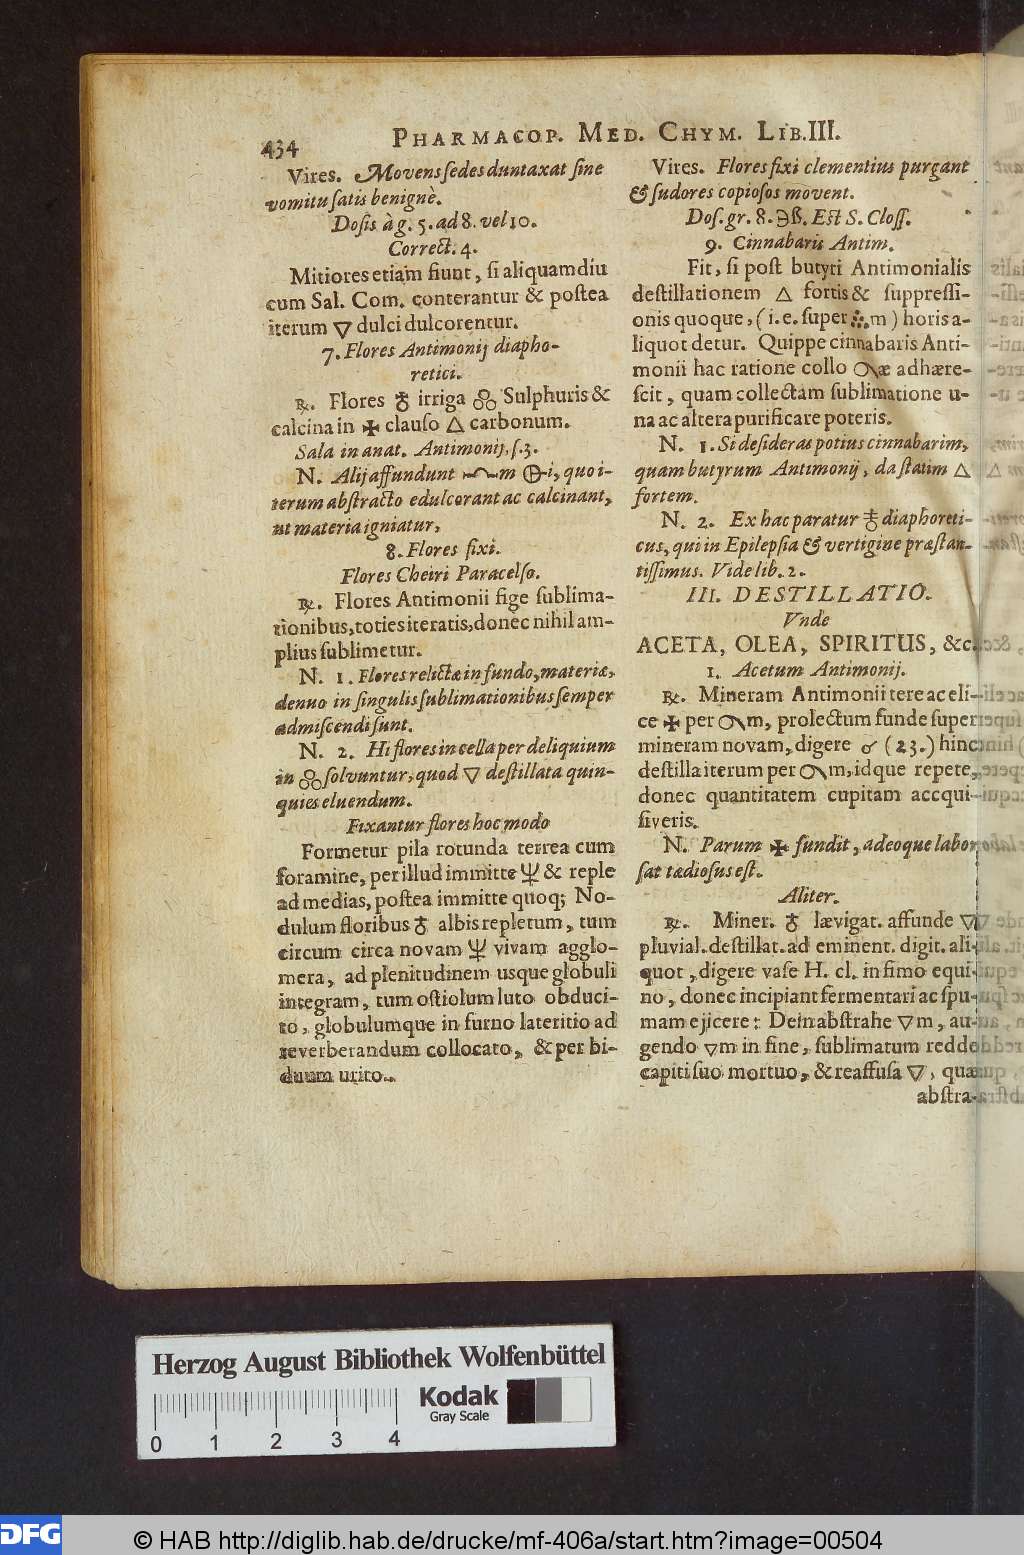 434 PHARMACOP. MED. CHYM. LIB. III.
Vires. Movens sedes duntaxat sine
vomitu satis benignè.
Dosis à g. 5. ad 8. vel 10.
Correct. 4.
Mitiores etiam fiunt, si aliquamdiu
cum Sal. Com. conterantur & postea
iterum 🜄 dulci dulcorentur.
7. Flores Antimonij diapho-
retici.
℞. Flores ♁ irriga Sulphuris &
calcina in ✠ clauso 🜂 carbonum.
Sala in anat. Antimonij, s. 3.
N. Alij affundunt m i, quo i-
terum abstracto edulcorant ac calcinant,
ut materia igniatur,
8. Flores fixi.
Flores Cheiri Paracelso.
℞. Flores Antimonii fige sublima-
tionibus, toties iteratis, donec nihil am-
plius sublimetur.
N. 1. Flores relictæ in fundo, materiæ,
denuo in singulis sublimationibus semper
admiscendi sunt.
N. 2. Hi flores in cella per deliquium
in solvuntur, quod 🜄 destillata quin-
quies eluendum.
Fixantur flores hoc modo
Formetur pila rotunda terrea cum
foramine, per illud immitte & reple
ad medias, postea immitte quoq; No-
dulum floribus ♁ albis repletum, tum
circum circa novam vivam agglo-
mera, ad plenitudinem usque globuli
integram, tum ostiolum luto obduci-
to, globulumque in furno lateritio ad
reverberandum collocato, & per bi-
duum urito.
Vires. Flores fixi clementius purgant
& sudores copiosos movent.
Dos. gr. 8. ℈ß. Est S. Closs.
9. Cinnabaris Antim.
Fit, si post butyri Antimonialis
destillationem 🜂 fortis & suppressi-
onis quoque, (i.e. super m) horis a-
liquot detur. Quippe cinnabaris Anti-
monii hac ratione collo æ adhære-
scit, quam collectam sublimatione u-
na ac altera purificare poteris.
N. 1. Si desideras potius cinnabarim,
quam butyrum Antimonij, da statim 🜂
fortem.
N. 2. Ex hac paratur ♁ diaphoreti-
cus, qui in Epilepsia & vertigine præstan-
tissimus. Vide lib. 2.
III. DESTILLATIO.
Vnde
ACETA, OLEA, SPIRITUS, &c.
1. Acetum Antimonij.
℞. Mineram Antimonii tere ac eli-
ce ✠ per m, prolectum funde super
mineram novam, digere (23.) hinc
destilla iterum per m, idque repete,
donec quantitatem cupitam accqui-
siveris.
N. Parum ✠ fundit, adeoque labor
sat tædiosus est.
Aliter.
℞. Miner. ♁ lævigat. affunde 🜄
pluvial. destillat. ad eminent. digit. ali-
quot, digere vase H. cl. in fimo equi-
no, donec incipiant fermentari ac spu-
mam ejicere: Dein abstrahe 🜄m, au-
gendo 🜄m in fine, sublimatum reddo
capiti suo mortuo, & reaffusa 🜄, quæ
abstra-
Herzog August Bibliothek Wolfenbüttel
Kodak
Gray Scale
0 1 2 3 4
DFG © HAB http://diglib.hab.de/drucke/mf-406a/start.htm?image=00504